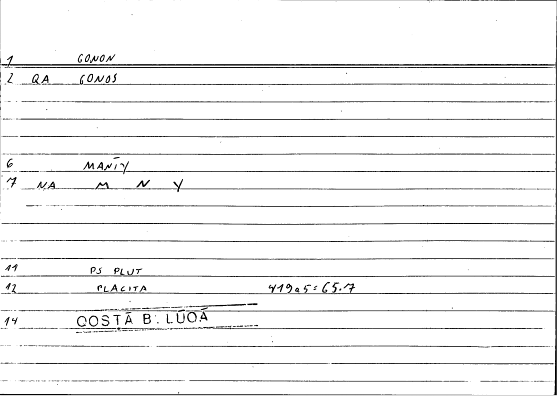 1 GONON
2 QA GONOS
6 MANĪY
7 NA M N Y
11 PS PLUT
12 PLACITA 419a5=65.7
14 QOSṬĀ B. LŪQĀ